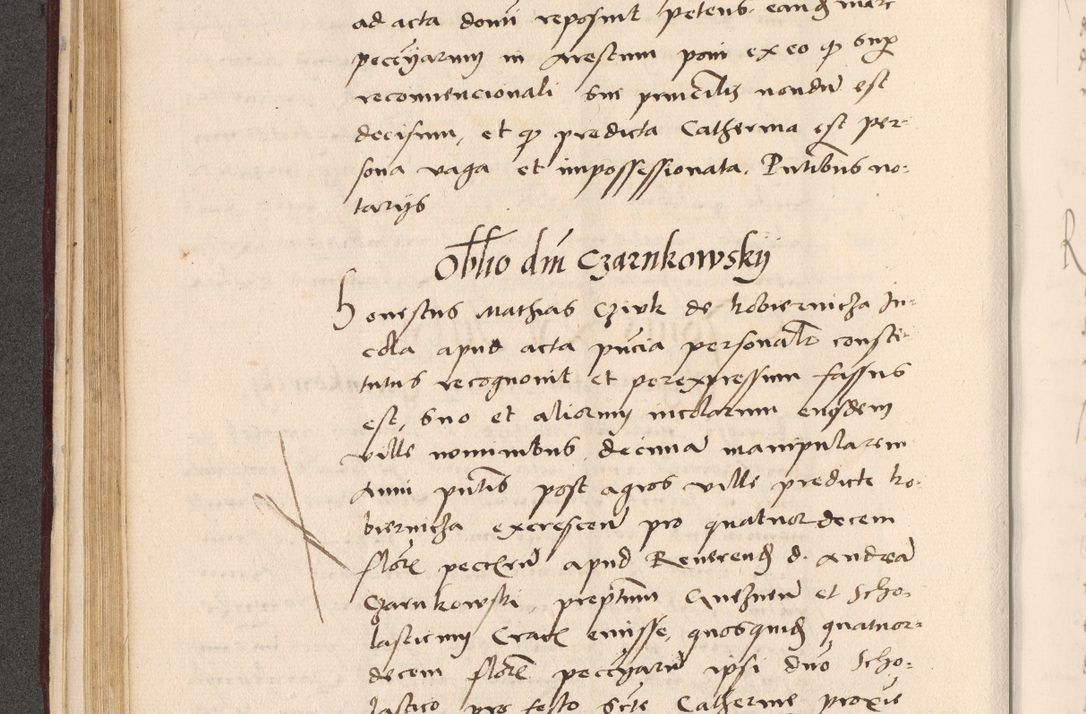 ad acta domi reposuit petens eandem
peccyarum in Arestum poni ex eo qp sup
reconvencionali sui principalis nondum est
decisum, et qp predicta Catherina est per-
sona vaga et impossessionata. Pntibus no-
tarijs
Obllio dni Czarnkowskij
Honestus Mathias Cziuk de kobiernicza In-
cola apud acta pncia personalr consti-
tutus recognovit et per expressum fassus
est, suo et aliorum incolarum eiusdem
ville nominibus decimam manipularem
Anni pntis post agros ville predicte ko-
biernicza excrescen pro quatuordecem
floren peccun apud Reverend d. Andrea
Czarnkowski, prepositum Gneznen et Scho-
lasticum Crac emisse, quosquid quatuor-
decem floren peccyaru ipsi dno Scho-
lastico pro festo scte Catherine proxie